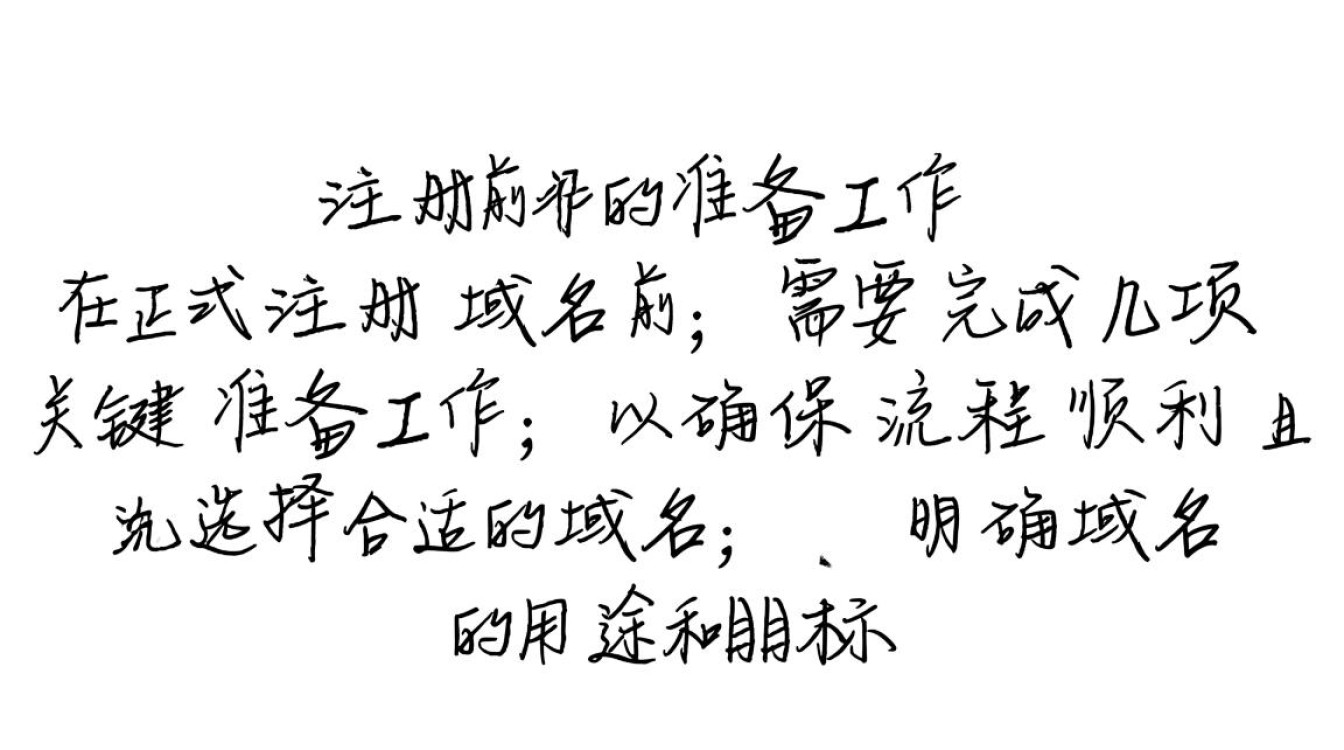 注册前的准备工作
在正式注册域名前；需要完成几项
关键准备工作；以确保流程顺利且
选择合适的域名；、明确域名
的用途和标